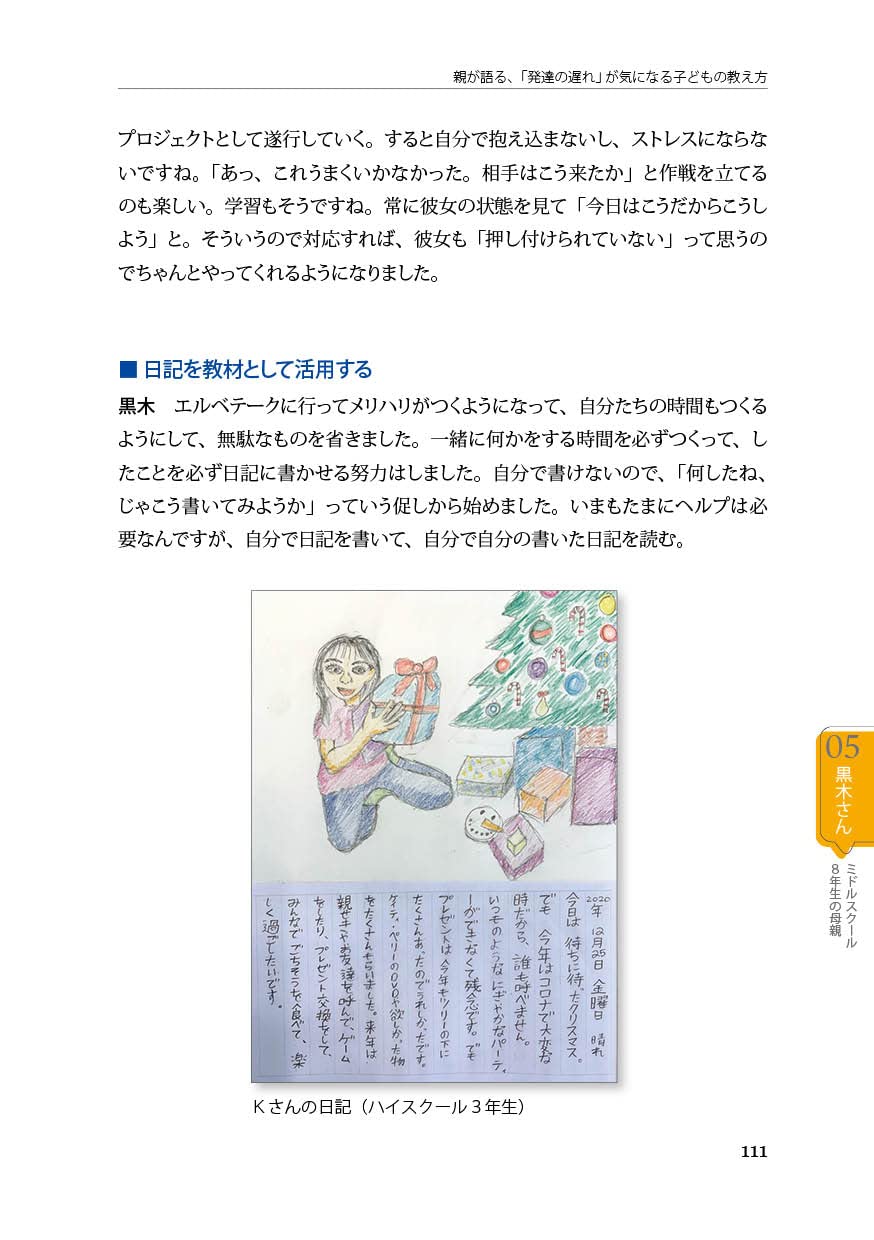 親が語る、「発達の遅れ」が気になる子どもの教え方
プロジェクトとして遂行していく。すると自分で抱え込まないし、ストレスにならな
いですね。「あっ、これうまくいかなかった。相手はこう来たか」と作戦を立てる
のも楽しい。学習もそうですね。常に彼女の状態を見て「今日はこうだからこうし
よう」と。そういうので対応すれば、彼女も「押し付けられていない」って思うの
でちゃんとやってくれるようになりました。
■ 日記を教材として活用する
黒木　エルベテークに行ってメリハリがつくようになって、自分たちの時間もつくる
ようにして、無駄なものを省きました。一緒に何かをする時間を必ずつくって、し
たことを必ず日記に書かせる努力はしました。自分で書けないので、「何したね、
じゃこう書いてみようか」っていう促しから始めました。いまもたまにヘルプは必
要なんですが、自分で日記を書いて、自分で自分の書いた日記を読む。
2020年 12月25日 金曜日 晴れ
今日は 待ちに待ったクリスマス。
でも 今年はコロナで大変な
時だから、誰も呼べません。
いつものような にぎやかなパーティ
ーができなくて残念です。でも
プレゼントは今年もツリーの下に
たくさんあったのでうれしかったです。
ケイティ・ペリーのDVDや欲しかった物
をたくさんもらいました。来年は
親せきやお友達を呼んで、ゲーム
をしたり、プレゼント交換をして、
みんなで ごちそうを食べて、楽
しく過ごしたいです。
Kさんの日記（ハイスクール3年生）
05
黒木さん
ミドルスクール
8年生の母親
111